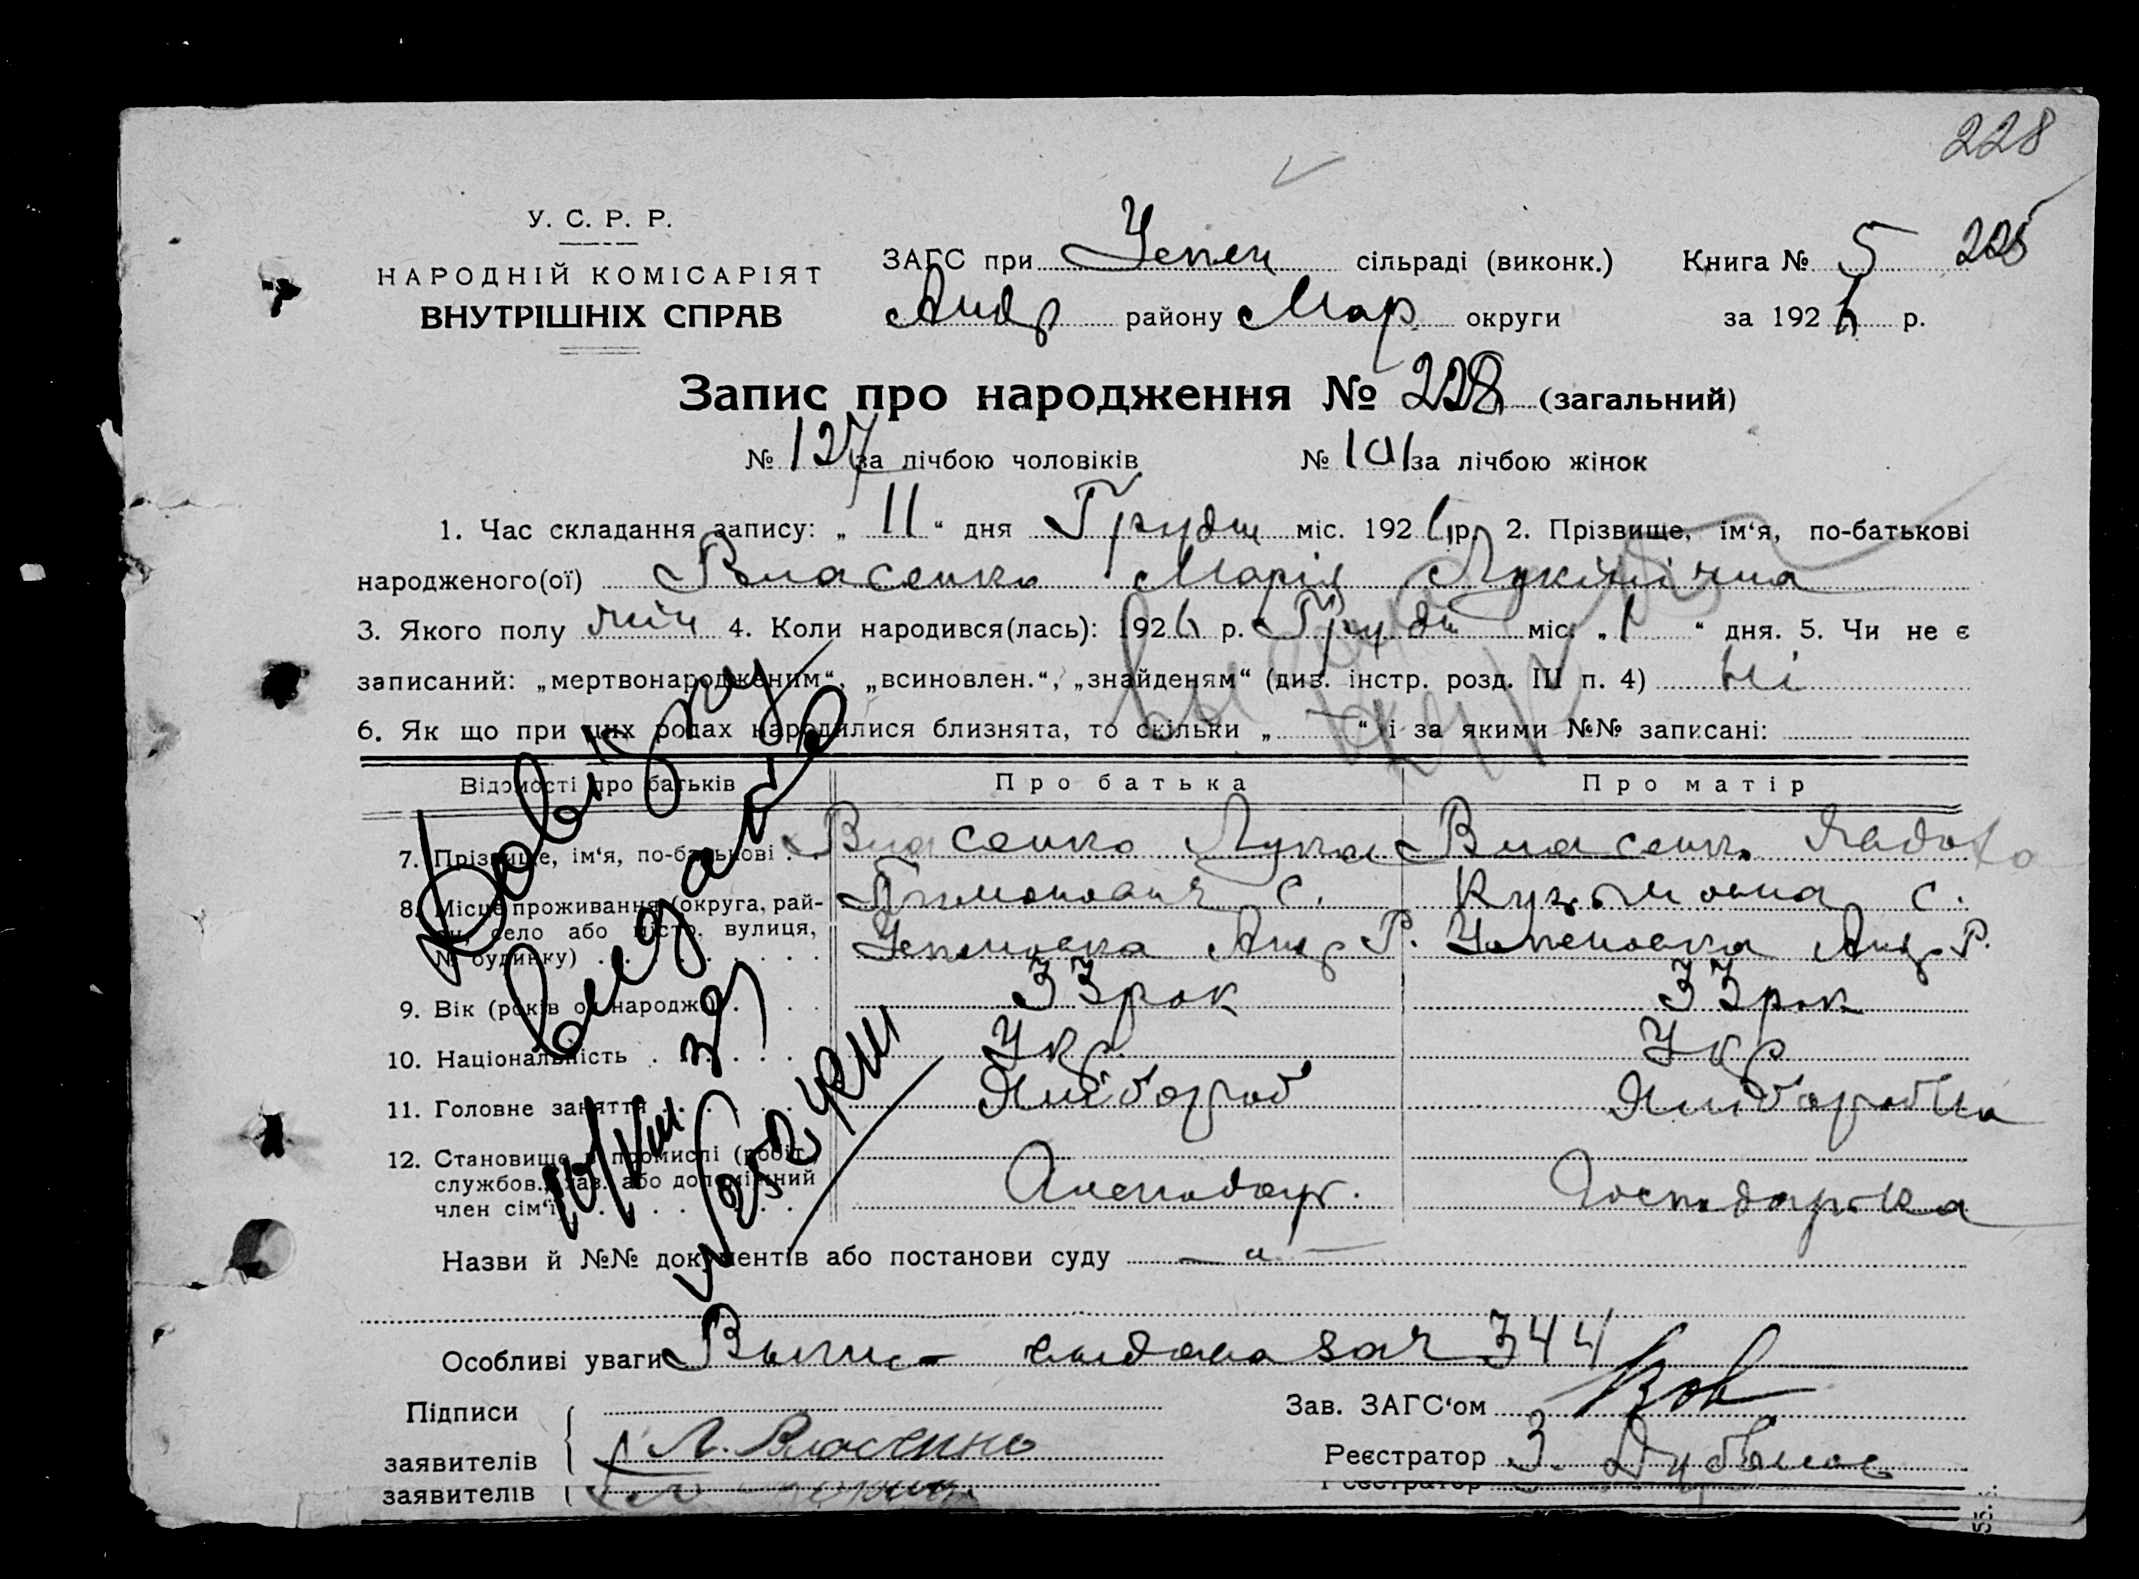 228
У. С. Р. Р.
НАРОДНІЙ КОМІСАРІЯТ
ВНУТРІШНІХ СПРАВ
ЗАГС при Успен сільраді (виконк.) Книга № 5
Андр району Мар округи за 1926 р.
Запис про народження № 228 (загальний)
№ 127 за лічбою чоловіків № 101 за лічбою жінок
1. Час складання запису: „ 11 “ дня Грудн міс. 1926 р. 2. Прізвище, ім‘я, по-батькові
народженого(ої) Власенко Марія Лукінічна
3. Якого полу жін 4. Коли народився(лась): 1926 р. Грудн міс. „ 1 “ дня. 5. Чи не є
записаний: „мертвонародженим“, „всиновлен.“, „знайденям“ (див. інстр. розд. III п. 4) ні
6. Як що при цих родах народилися близнята, то скільки „ — “ і за якими №№ записані:
Відомості про батьків Про батька Про матір
7. Прізвище, ім‘я, по-батькові Власенко Лука Власенко Явдоха
8. Місце проживання (округа, рай- с. Кузьмовна с.
он, село або місто, вулиця, Успеновка Андр Р. Успеновка Андр Р.
№ будинку)
9. Вік (років од народж.) 33 рок 33 рок
10. Національність Укр Укр
11. Головне заняття Хлібороб Хліборобка
12. Становище в промислі (робіт.,
службов., хаз. або допоміжний
член сім‘ї) Господар. Господарька
Назви й №№ документів або постанови суду — “ —
Особливі уваги Выпис— выдана за № 344
Підписи Зав. ЗАГС‘ом
заявителів Л. Власенко Реєстратор З.
заявителів
Довідку
видано